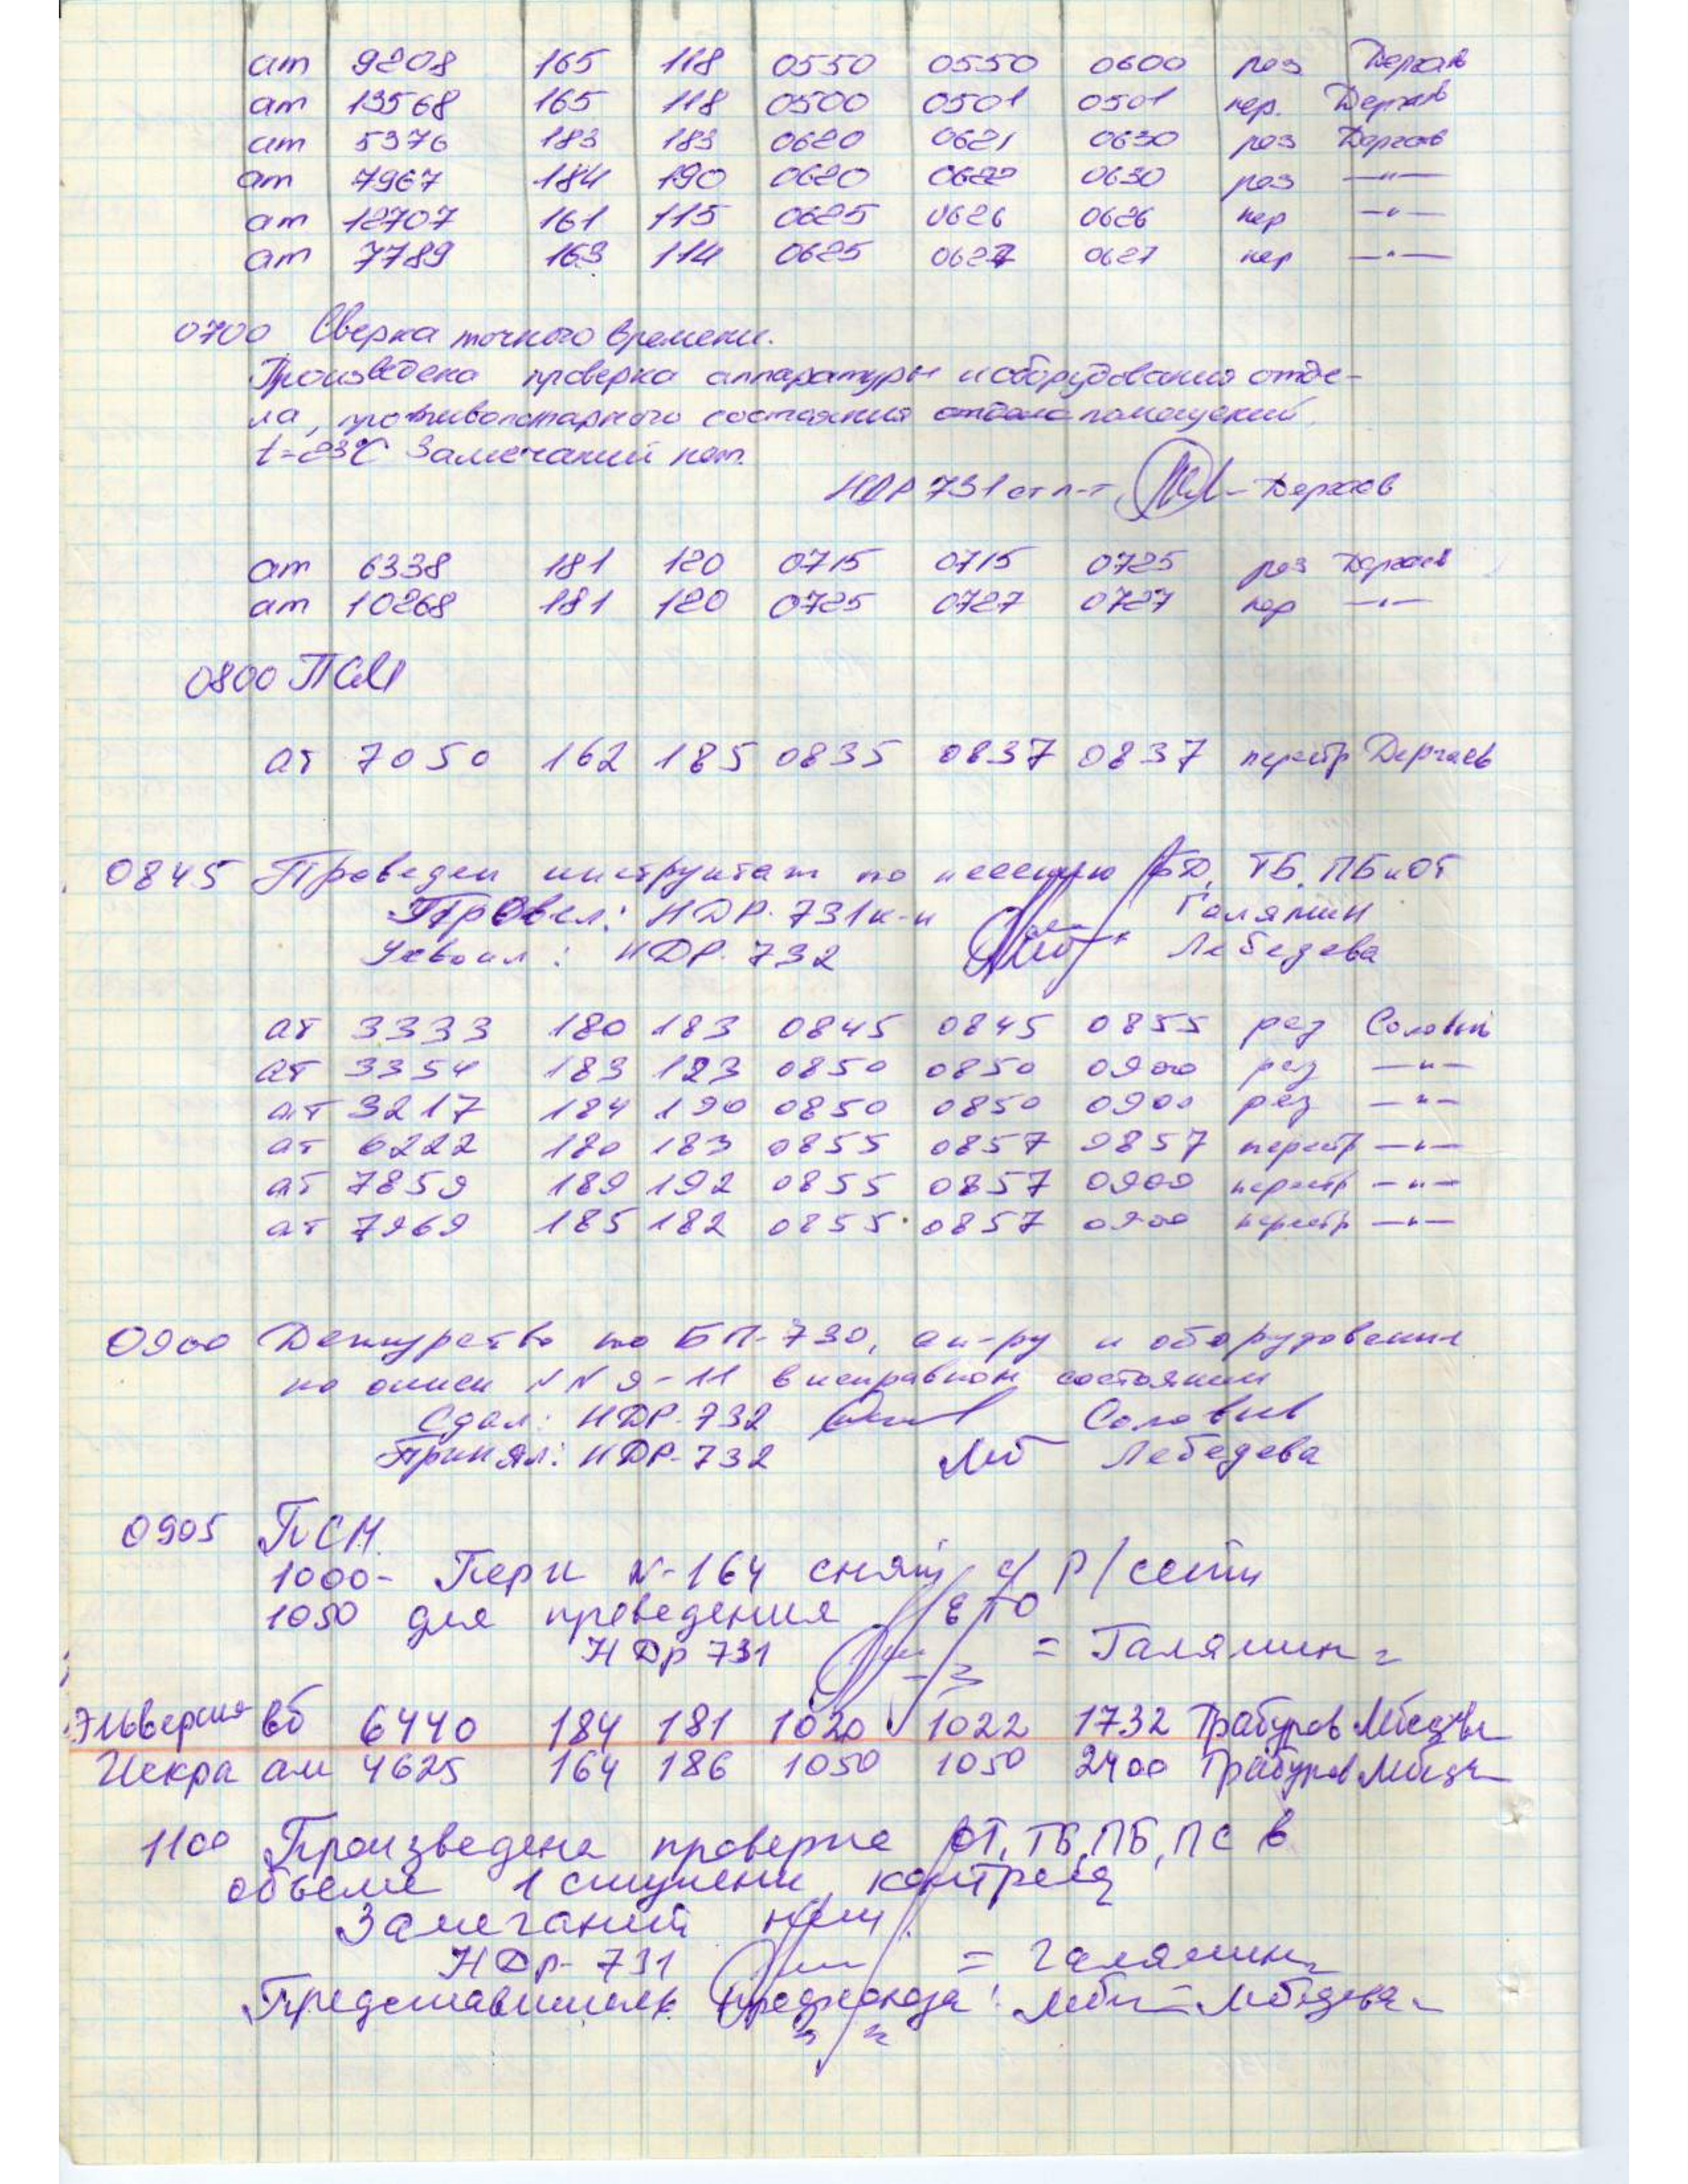 ат 9208 165 118 0550 0550 0600 рез Дергаев
ат 13568 165 118 0500 0501 0501 пер. Дергаев
ат 5376 183 183 0620 0621 0630 рез Дергаев
ат 7967 184 190 0620 0622 0630 рез —"—
ат 12707 161 115 0625 0626 0626 пер —"—
ат 7789 163 114 0625 0627 0627 пер —"—
0700 Сверка точного времени.
Произведена проверка аппаратуры и оборудования отде-
ла, противопожарного состояния помещений.
t=23°С Замечаний нет.
НДР 731 ст л-т Дергаев
ат 6338 181 120 0715 0715 0725 рез Дергаев
ат 10268 181 120 0725 0727 0727 пер —"—
0800 ПСМ
ат 7050 162 185 0835 0837 0837 перестр Дергаев
0845 Проведен инструктаж по несению БД, ТБ, ПБ и ОТ
Провел: НДР-731 к-н Галямин
Усвоил: НДР-732 Лебедева
ат 3333 180 183 0845 0845 0855 рез Соловьев
ат 3354 183 123 0850 0850 0900 рез —"—
ат 3217 184 190 0850 0850 0900 рез —"—
ат 6222 180 183 0855 0857 0857 перестр —"—
ат 7859 189 192 0855 0857 0900 перестр —"—
ат 7969 185 182 0855 0857 0900 перестр —"—
0900 Дежурство по БП-730, ап-ру и оборудование
по описи NN 9-11 в исправном состоянии
Сдал: НДР-732 Соловьев
Принял: НДР-732 Лебедева
0905 ПСМ.
1000- N-164 снят с Р/сети
1050 для проведения ЕТО
НДр 731 = Галямин =
вб 6440 184 181 1020 1022 1732 Трабуров Лебедева
Искра ам 4625 164 186 1050 1050 2400 Трабуров Лебедева
1100 Произведена проверка ОТ, ТБ, ПБ, ПС в
объеме 1 ступени контроля
Замечаний нет.
НДр-731 = Галямин =
Представитель профсоюза: Лебедева